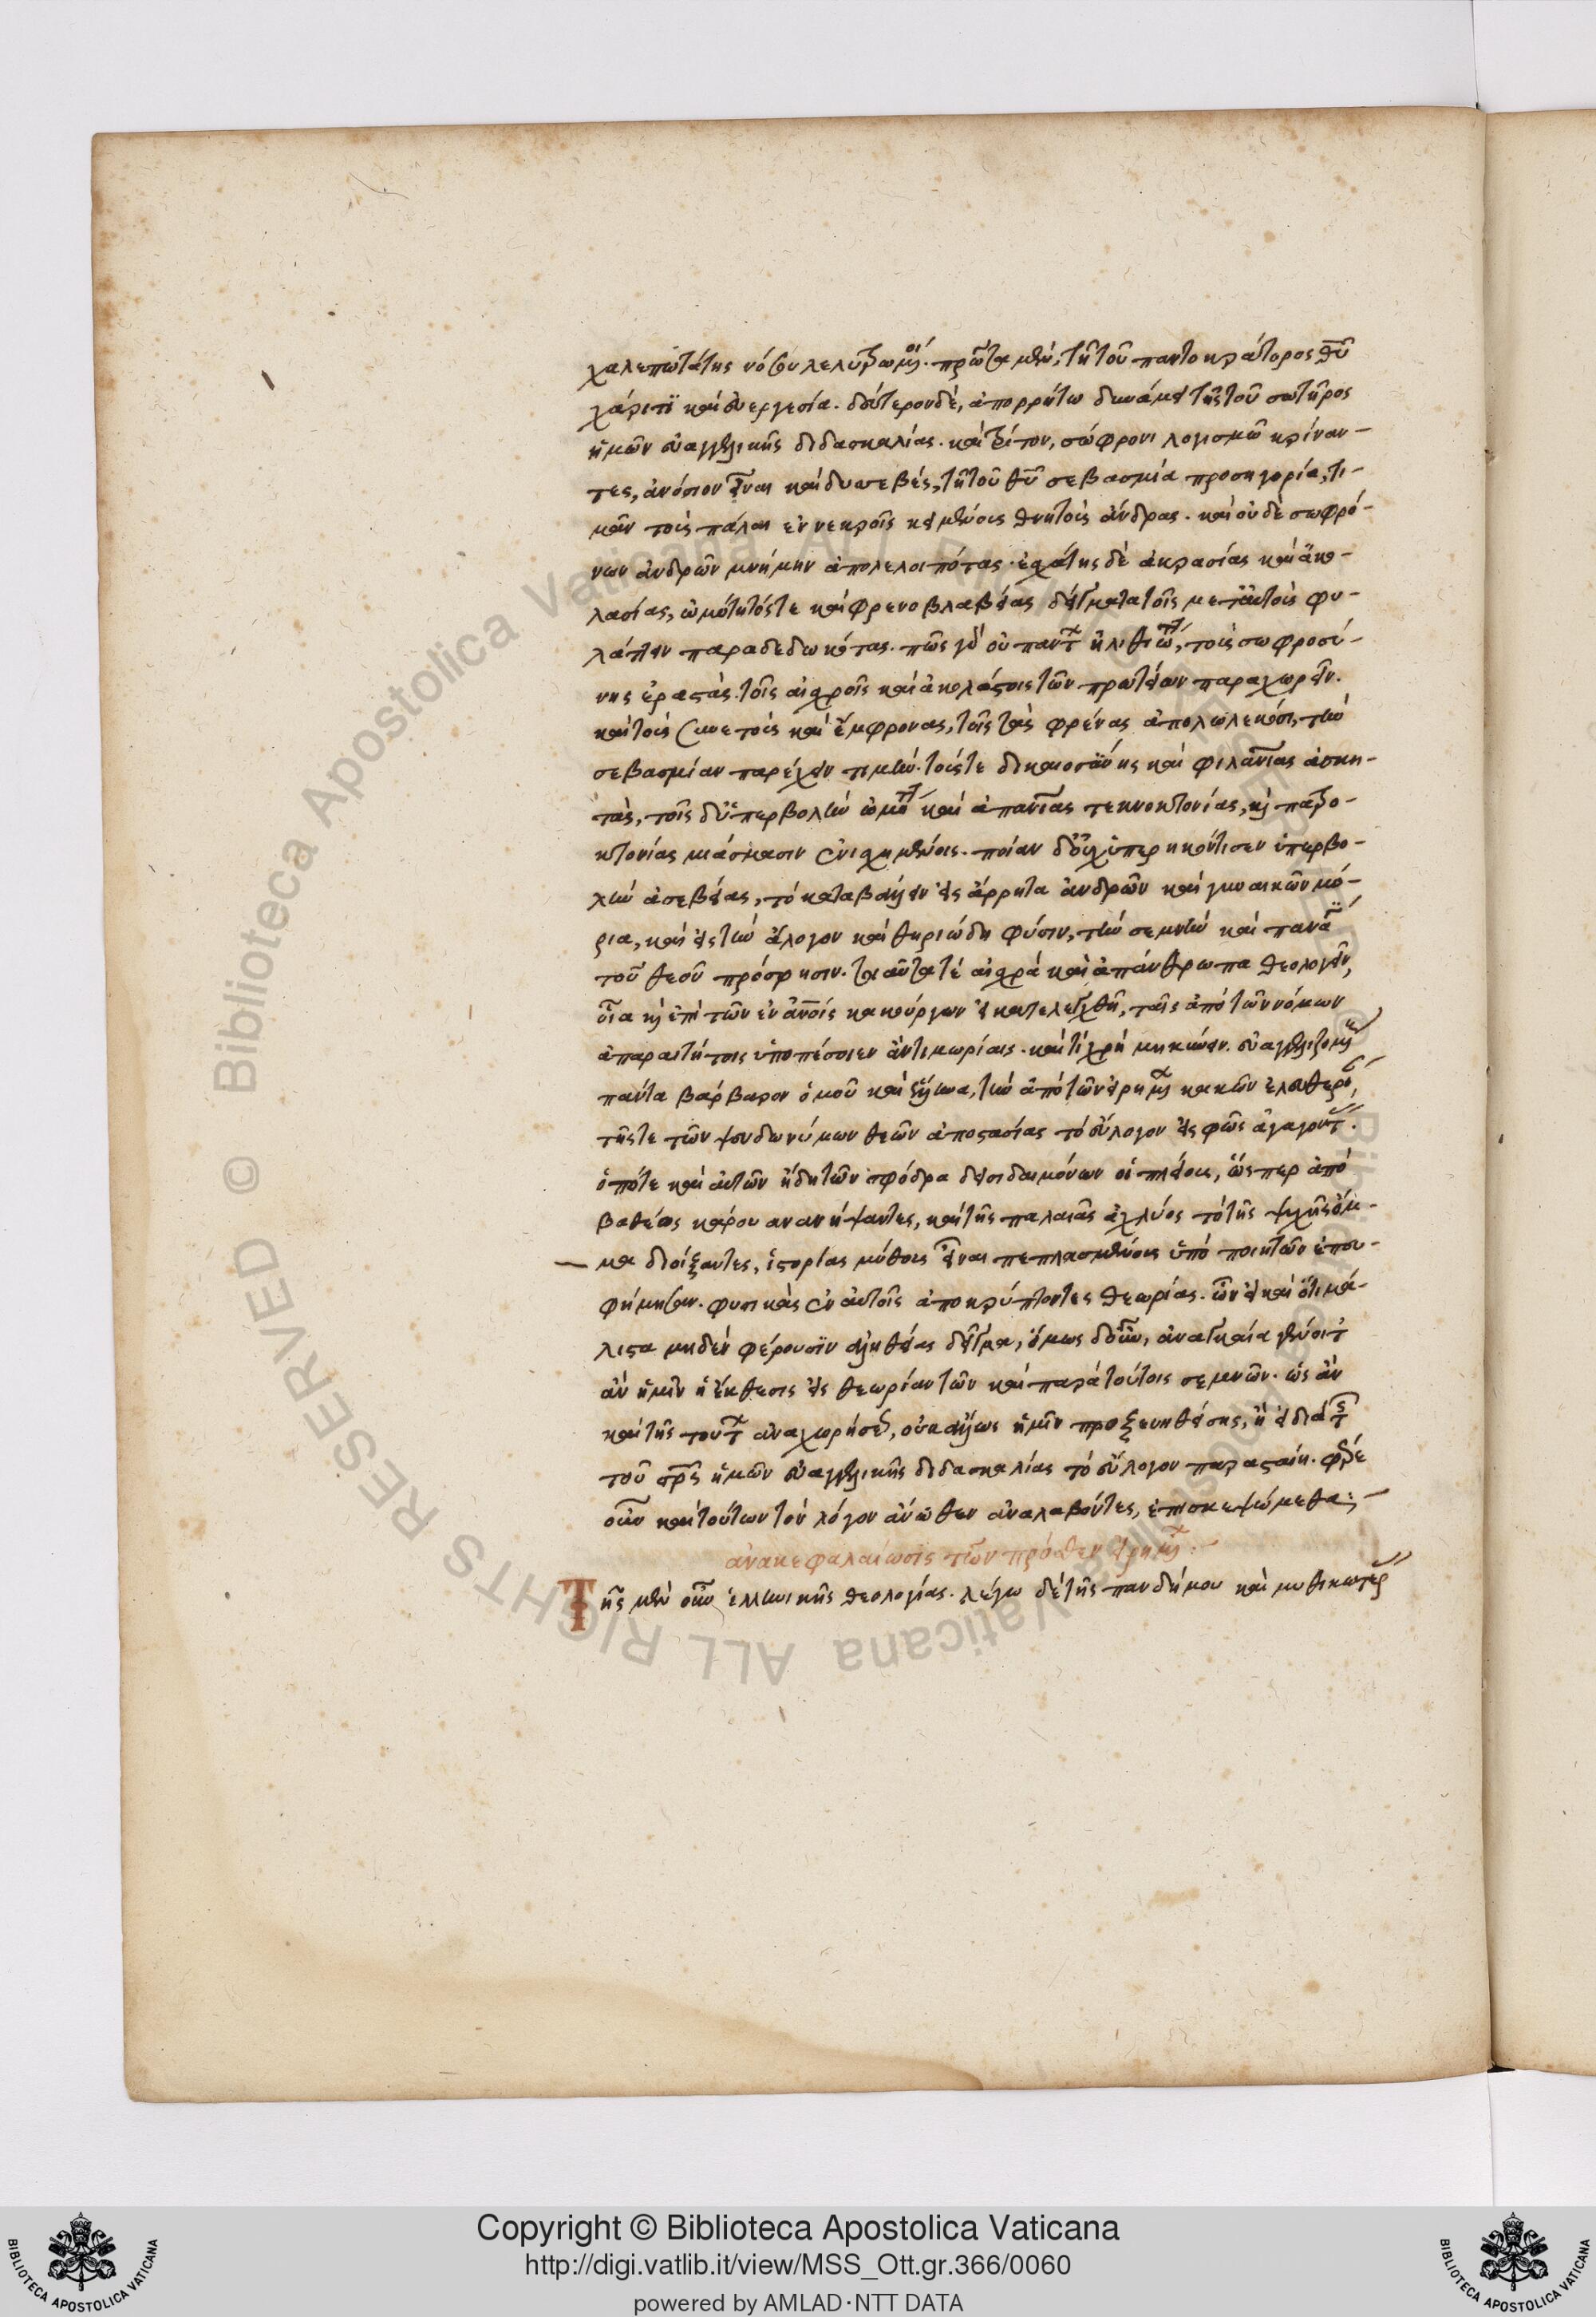 χαλεπωτάτης νόσου λελυτρωμένοι. πρῶτα μὲν, τῇ τοῦ παντοκράτορος θῦ
χάριτι καὶ εὐεργεσία. δεύτερον δὲ, ἀπορρήτω δυνάμει τῆς τοῦ σωτῆρος
ἡμῶν εὐαγγελικῆς διδασκαλίας. καὶ τρίτον, σώφρονι λογισμῶ κρίναν-
τες, ἀνόσιον εἶναι καὶ δυσσεβὲς, τῇ τοῦ θῦ σεβασμία προσηγορία, τι-
μᾶν τοὺς πάλαι ἐν νεκροῖς κειμένους θνητοὺς ἄνδρας. καὶ οὐδὲ σωφρό-
νων ἀνδρῶν μνήμην ἀπολελοιπότας. ἐσχάτης δὲ ἀκρασίας καὶ ἀκο-
λασίας, ὠμότητός τε καὶ φρενοβλαβείας δείγματα τοῖς μετ' αὐτοὺς φυ-
λάττειν παραδεδωκότας. πῶς γὰρ οὐ παντ ἠλιθιώτ, τοὺς σωφροσύ-
νης ἐραστὰς. τοῖς αἰσχροῖς καὶ ἀκολάστοις τῶν πρωτείων παραχωρεῖν.
καὶ τοὺς συνετοὺς καὶ ἔμφρονας, τοῖς τὰς φρένας ἀπολωλεκόσι, τὴν
σεβασμίαν παρέχειν τιμήν. τούς τε δικαιοσύνης καὶ φιλανίας ἀσκη-
τὰς, τοῖς δι' ὑπερβολὴν ὠμότ καὶ ἀπανίας τεκνοκτονίας, καὶ πατρο-
κτονίας μιάσμασιν ἐνισχημένοις. ποίαν δ' οὐχ ὑπερηκόντισεν ὑπερβο-
λὴν ἀσεβείας, τὸ καταβάλλειν εἰς ἄρρητα ἀνδρῶν καὶ γυναικῶν μό-
ρια, καὶ εἰς τὴν ἄλογον καὶ θηριώδη φύσιν, τὴν σεμνὴν καὶ παναγ
τοῦ θεοῦ πρόσρησιν. τὰ αὐτά τε αἰσχρὰ καὶ ἀπάνθρωπα θεολογεῖν,
οἷα καὶ ἐπὶ τῶν ἐν ἀνοῖς κακούργων εἰ κατελεγχθῆ, ταῖς ἀπὸ τῶν νόμων
ἀπαραιτήτοις ὑποπέσοιεν ἂν τιμωρίαις. καὶ τί χρὴ μηκύνειν. εὐαγγελιζομ
πάντα βάρβαρον ὁμοῦ καὶ ἕλληνα, τὴν ἀπὸ τῶν εἰρημ κακῶν ἐλευθερ,
τῆς τε τῶν ψευδωνύμων θεῶν ἀποστασίας τὸ εὔλογον εἰς φῶς ἀγαγοντ.
ὁπότε καὶ αὐτῶν ἤδη τῶν σφόδρα δεισιδαιμόνων οἱ πλείους, ὥσπερ ἀπὸ
βαθέως κάρου ανανήψαντες, καὶ τῆς παλαιᾶς ἀχλύος τὸ τῆς ψυχῆς ὄμ-
μα διοίξαντες, ἱστορίας μύθους εἶναι πεπλασμένους ὑπὸ ποιητῶν ἐπευ-
φήμησαν. φυσικὰς ἐν αὐτοῖς ἀποκρύπτοντες θεωρίας. ὧν εἰ καὶ ὅτι μά-
λιστα μηδὲν φέρουσιν ἀληθείας δεῖγμα, ὅμως δ' οὖν, ἀναγκαία γένοιτ
ἂν ἡμῖν ἡ ἔκθεσις εἰς θεωρίαν τῶν καὶ παρὰ τούτοις σεμνῶν. ὡς ἂν
καὶ τῆς τούτ ἀναχωρήσε, οὐκ ἄλλως ἡμῖν προξενηθείσης, ἢ εἰ διὰ τ
τοῦ σρς ἡμῶν εὐαγγελικῆς διδασκαλίας τὸ εὔλογον παρασταίη. φέρε
οὖν καὶ τούτων τὸν λόγον ἄνωθεν ἀναλαβόντες, ἐπισκεψώμεθα:-
ἀνακεφαλαίωσις τῶν πρόσθεν εἰρημ:-
Τῆς μὲν οὖν ἑλληνικῆς θεολογίας. λέγω δὲ τῆς πανδήμου καὶ μυθικωτέρ
Copyright © Biblioteca Apostolica Vaticana
http://digi.vatlib.it/view/MSS_Ott.gr.366/0060
powered by AMLAD·NTT DATA